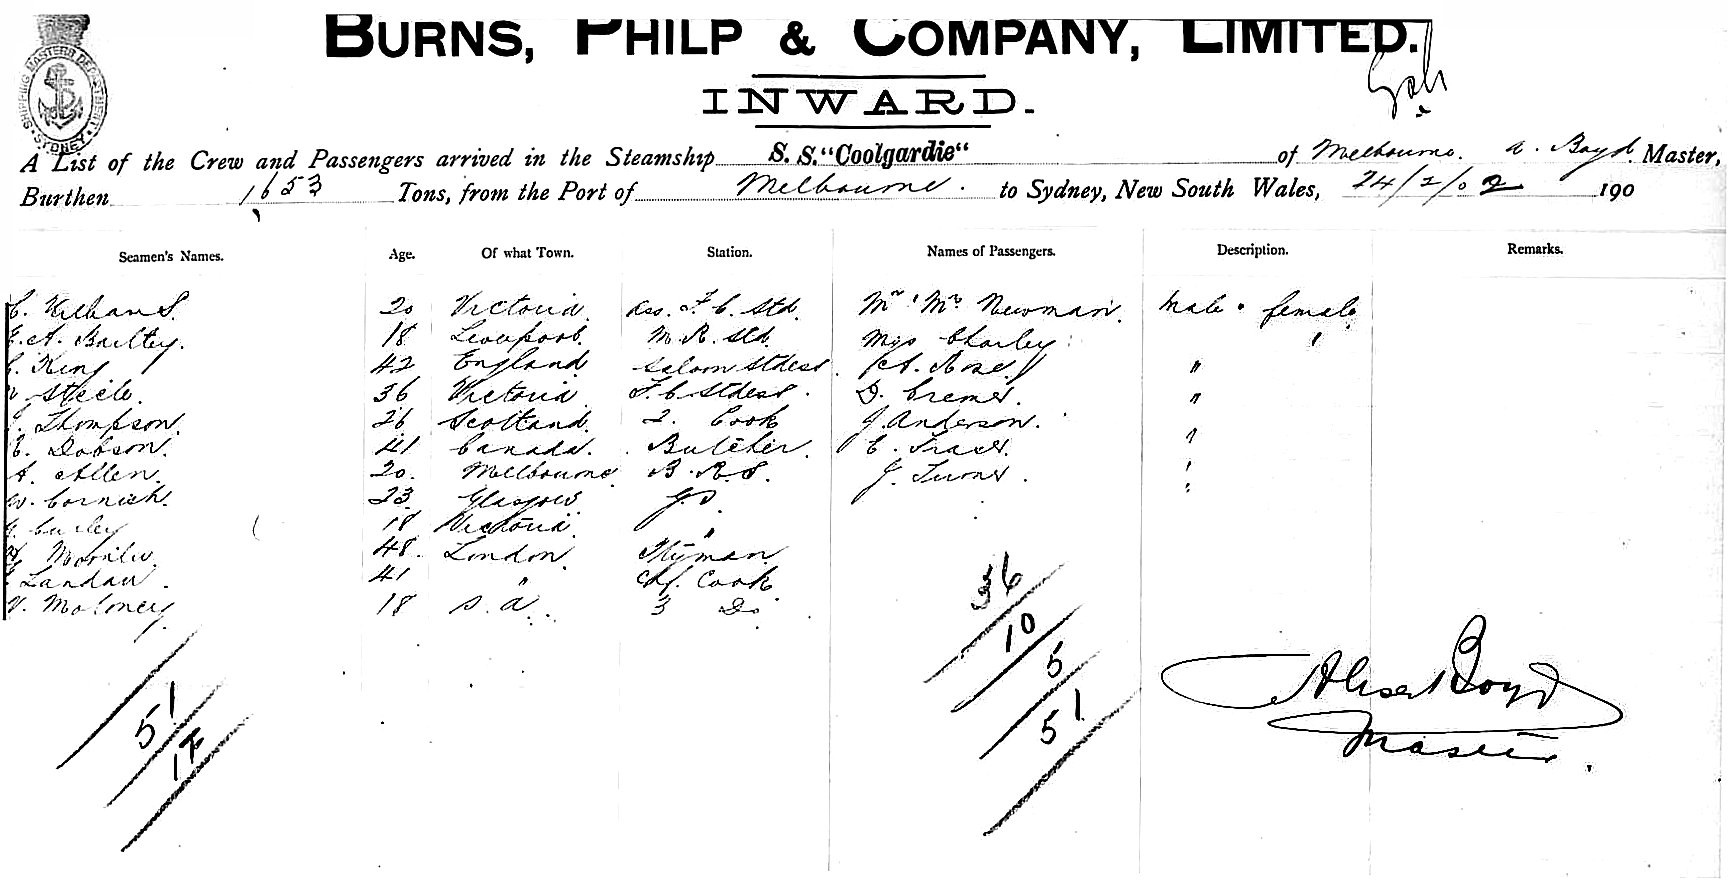 BURNS, PHILP & COMPANY, LIMITED.
INWARD.
SHIPPING MASTERS DEPARTMENT
SYDNEY
A List of the Crew and Passengers arrived in the Steamship S. S. "Coolgardie" of Melbourne. A. Boyd Master,
Burthen 1653 Tons, from the Port of Melbourne. to Sydney, New South Wales, 24/2/02 190
Seamen's Names. Age. Of what Town. Station. Names of Passengers. Description. Remarks.
20 Victoria. Ass. F. C. Std. Mr Mrs Newman. Male female
E. A. Bailey. 18 Liverpool. M. R. Std. Charley
King 42 England Saloon Stdess. A. Rose "
Steele. 36 Victoria F. C. Stdess. D. Cremer. "
Thompson. 26 Scotland. 2. Cook J. Anderson.
Dobson. 41 Canada. Butcher. E.
A. Allen. 20. Melbourne B. R. S. J. Turner.
W. Cornish. 23. Glasgow. G. S.
Curley 18 Victoria. "
48. London.
Landau. 41 " Chf. Cook
Moloney 18 S. A. 3 Do
36
10
5
51
51
17
Alexr Boyd
Master.